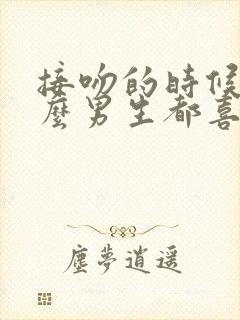 接吻的時候
麼男生都喜
塵夢逍遥